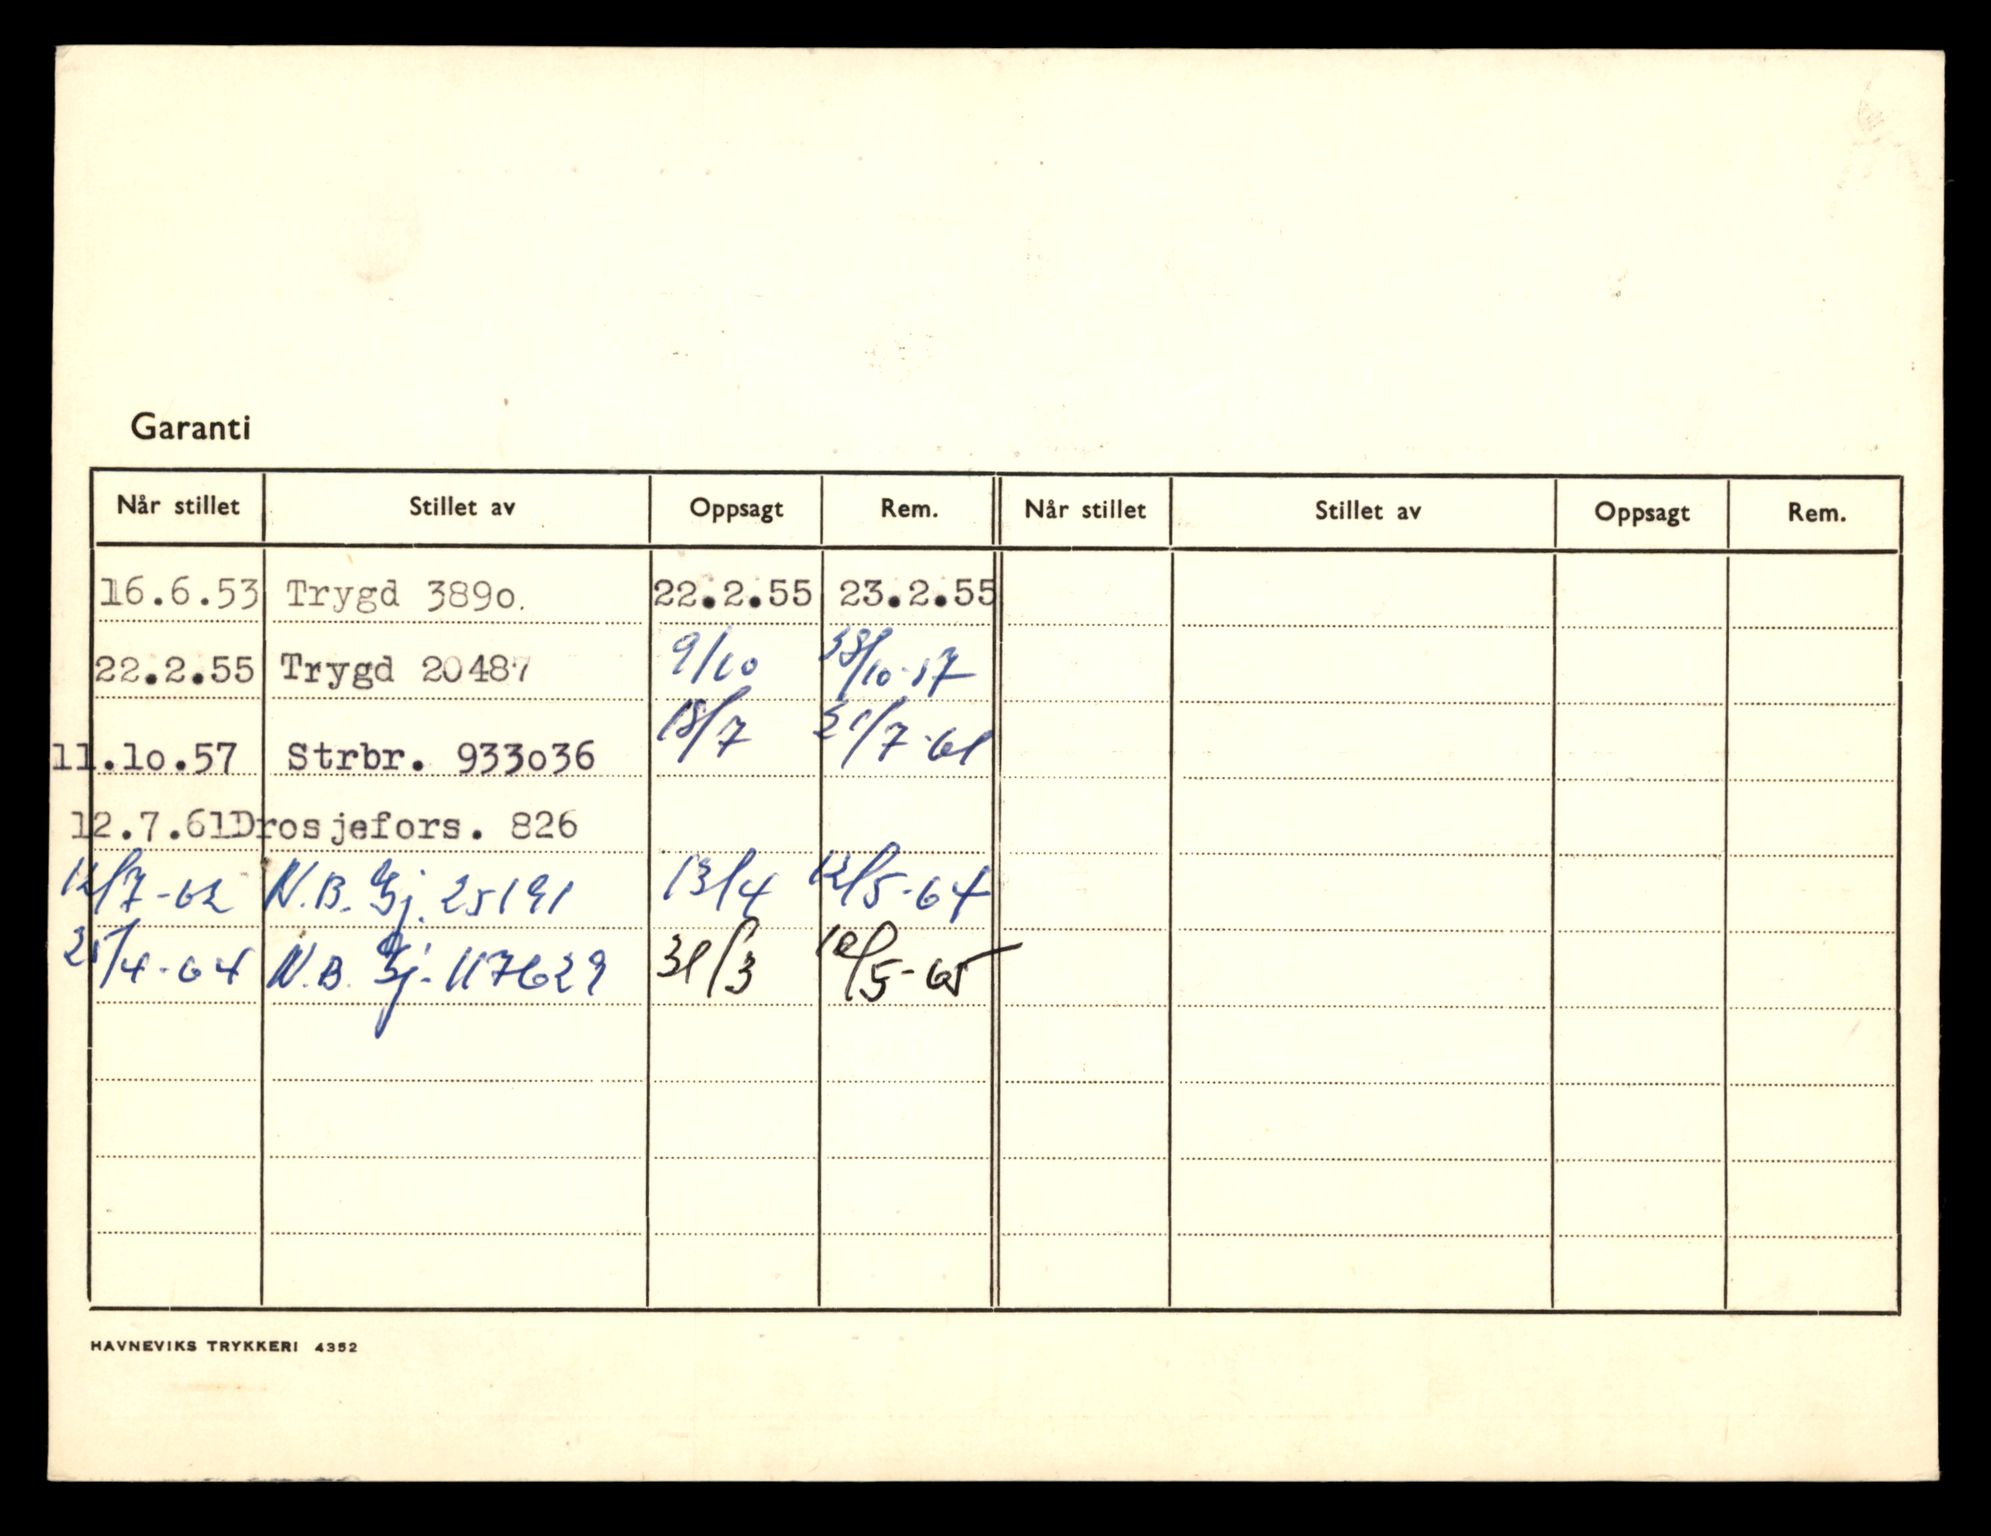 Garanti
Når stillet Stillet av Oppsagt Rem. Når stillet Stillet av Oppsagt Rem.
16.6.53 Trygd 389o. 22.2.55 23.2.55
22.2.55 Trygd 20487 9/10 /10-57
11.1o.57 Strbr. 933o36 18/7 21/7-61
12.7.61 Drosjefors. 826
12/7-62 N.B. Gj. 25191 13/4 12/5-64
25/4-64 N.B. Gj. 117629 31/3 10/5-65
HAVNEVIKS TRYKKERI 4352